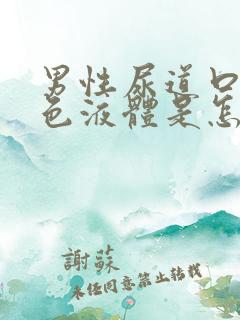 男性尿道口
色液體是怎
謝蘇
未經同意禁止轉載